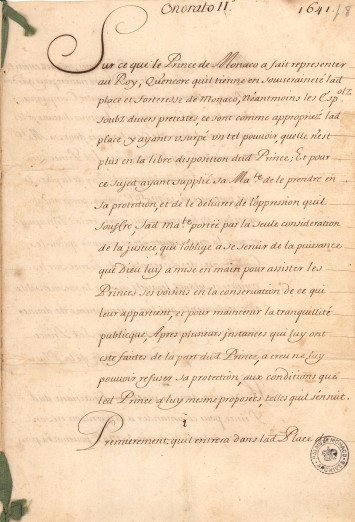 Onorato II. 1641. 78
Sur ce que le Prince de Monaco a fait representer
au Roy, Qu'encore quil tienne en souueraineté lad
place et forteresse de Monaco, Néantmoins les Espolz
soubz diuers pretextes, ce sont comme appropriez lad
place, y ayants vsurpé vn tel pouuoir, quelle n'est
plus en la libre disposition dud Prince; Et pour
ce sujet ayant supplié sa Ma.te de le prendre en
sa protection, et de le deliurer de l'oppression quil
souffre, sad ma.te portée par la seule consideration
de la justice, qui l'oblige a se seruir de la puissance
que Dieu luy a mise en main pour assister les
Princes ses voisins en la conseruation de ce qui
leur appartient, et pour maintenir la tranquillité
publicque, Apres plusieurs instances qui luy ont
esté faictes de la part dud Prince, a creu ne luy
pouuoir refuser sa protection, aux conditions que
led Prince a luy mesme proposées, telles quil s'ensuit.
1
Premierement, quil entrera dans lad Place de
PALAIS DE MONACO
ARCHIVES